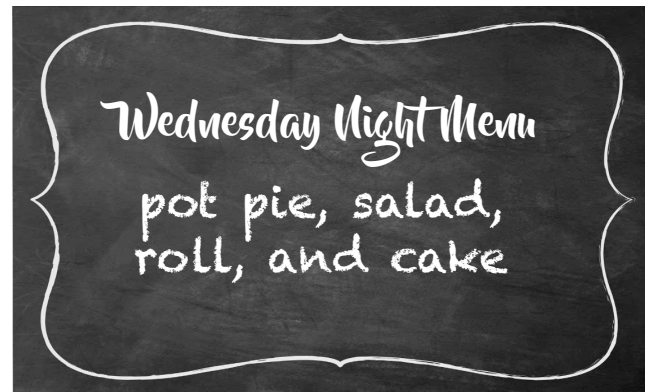 Wednesday Night Menu
pot pie, salad,
roll, and cake